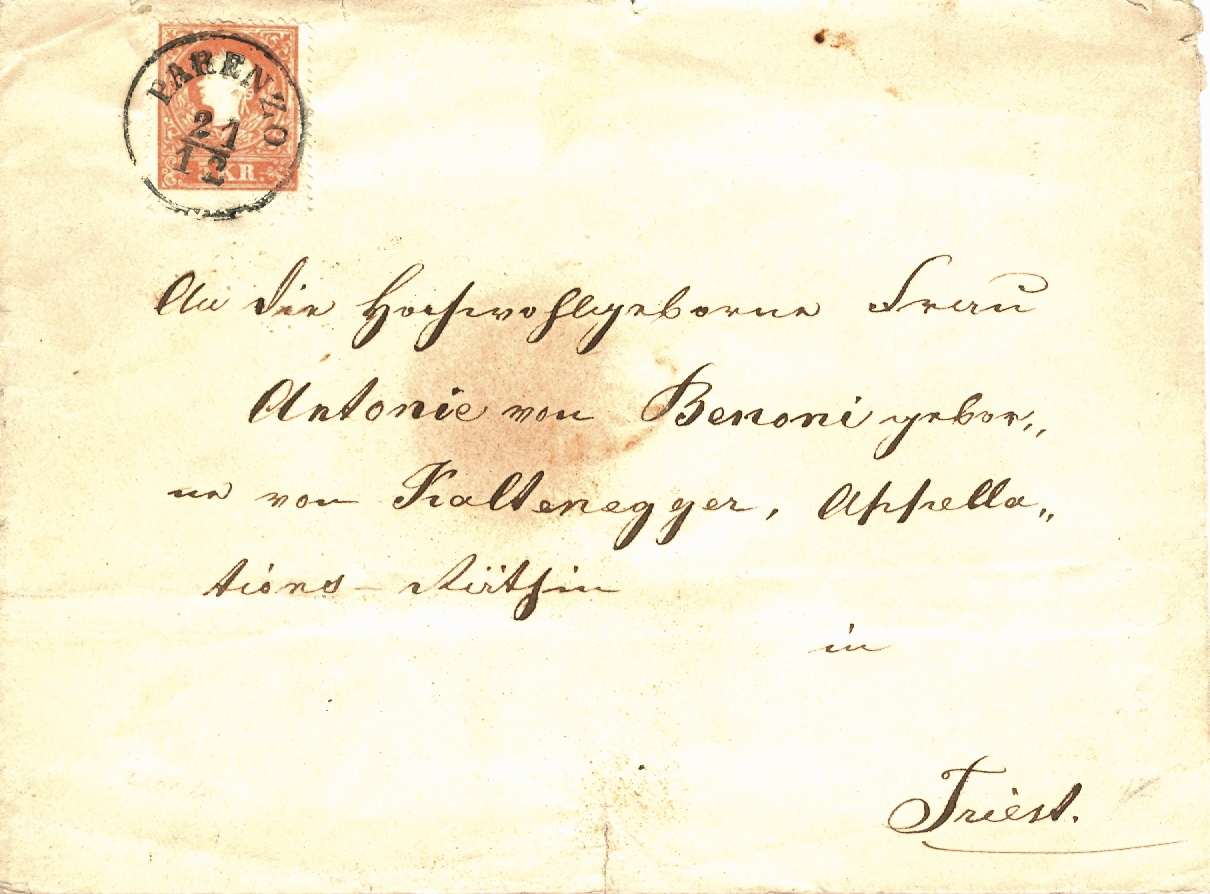 PARENZO
21
12
5 KR.
An die Hochwohlgeborne Frau
Antonie von Benoni gebor„
ne von Kaltenegger, Appella„
tions - Räthin
in
Triest.